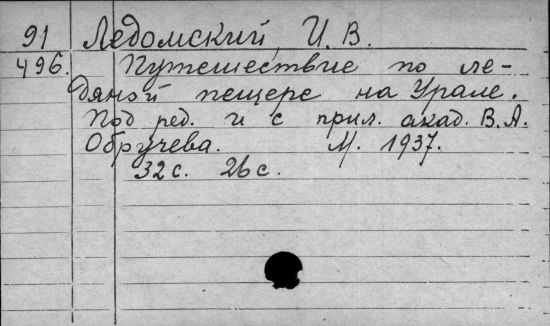 91 Ледомский И. В.
496. Путешествие по ле-
дяной пещере на Урале.
Под ред. и с прил. акад. В. А.
Обручева. М. 1937.
32 с. 26 с.